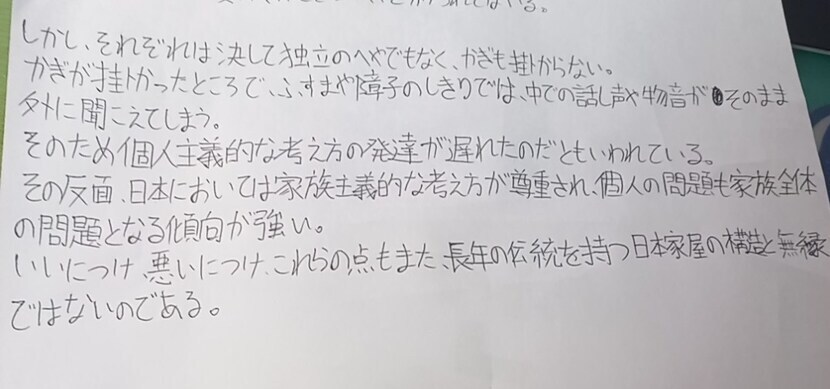 しかし、それぞれは決して独立のへやでもなく、かぎも掛からない。
かぎが掛かったところで、ふすまや障子のしきりでは、中での話し声や物音がそのまま
外に聞こえてしまう。
そのため個人主義的な考え方の発達が遅れたのだともいわれている。
その反面、日本においては家族主義的な考え方が尊重され、個人の問題も家族全体
の問題となる傾向が強い。
いいにつけ、悪いにつけ、これらの点もまた、長年の伝統を持つ日本家屋の構造と無縁
ではないのである。